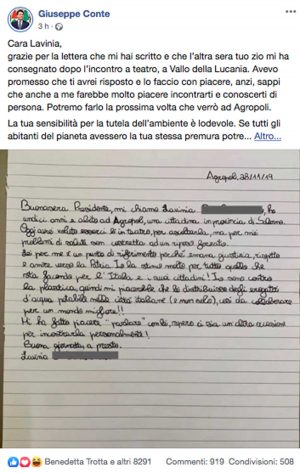 Giuseppe Conte
3 h ·
Cara Lavinia,
grazie per la lettera che mi hai scritto e che l'altra sera tuo zio mi ha
consegnato dopo l'incontro a teatro, a Vallo della Lucania. Avevo
promesso che ti avrei risposto e lo faccio con piacere, anzi, sappi
che anche a me farebbe molto piacere incontrarti e conoscerti di
persona. Potremo farlo la prossima volta che verrò ad Agropoli.
La tua sensibilità per la tutela dell'ambiente è lodevole. Se tutti gli
abitanti del pianeta avessero la tua stessa premura potre... Altro...
Agropoli, 28/11/19
Buonasera Presidente, mi chiamo Lavinia ho
undici anni e abito ad Agropoli, una cittadina in provincia di Salerno.
Oggi avrei voluto esserci lì in teatro, per ascoltarla, ma per miei
problemi di salute son costretta ad un riposo forzato.
Lei per me è un punto di riferimento perché emana giustizia, rispetto
e amore verso la Patria. Io la stimo molto per tutto quello che
sta facendo per l'Italia e i suoi cittadini! Io sono contro
la plastica, quindi mi piacerebbe che lei distribuisse degli erogatori
d'acqua potabile nelle città italiane (e non solo), così da collaborare
per un mondo migliore!!
Mi ha fatto piacere "parlare" con lei, spero ci sia un'altra occasione
per incontrarla personalmente!
Buona giornata, a presto.
Lavinia
Benedetta Trotta e altri 8291 Commenti: 919 Condivisioni: 508